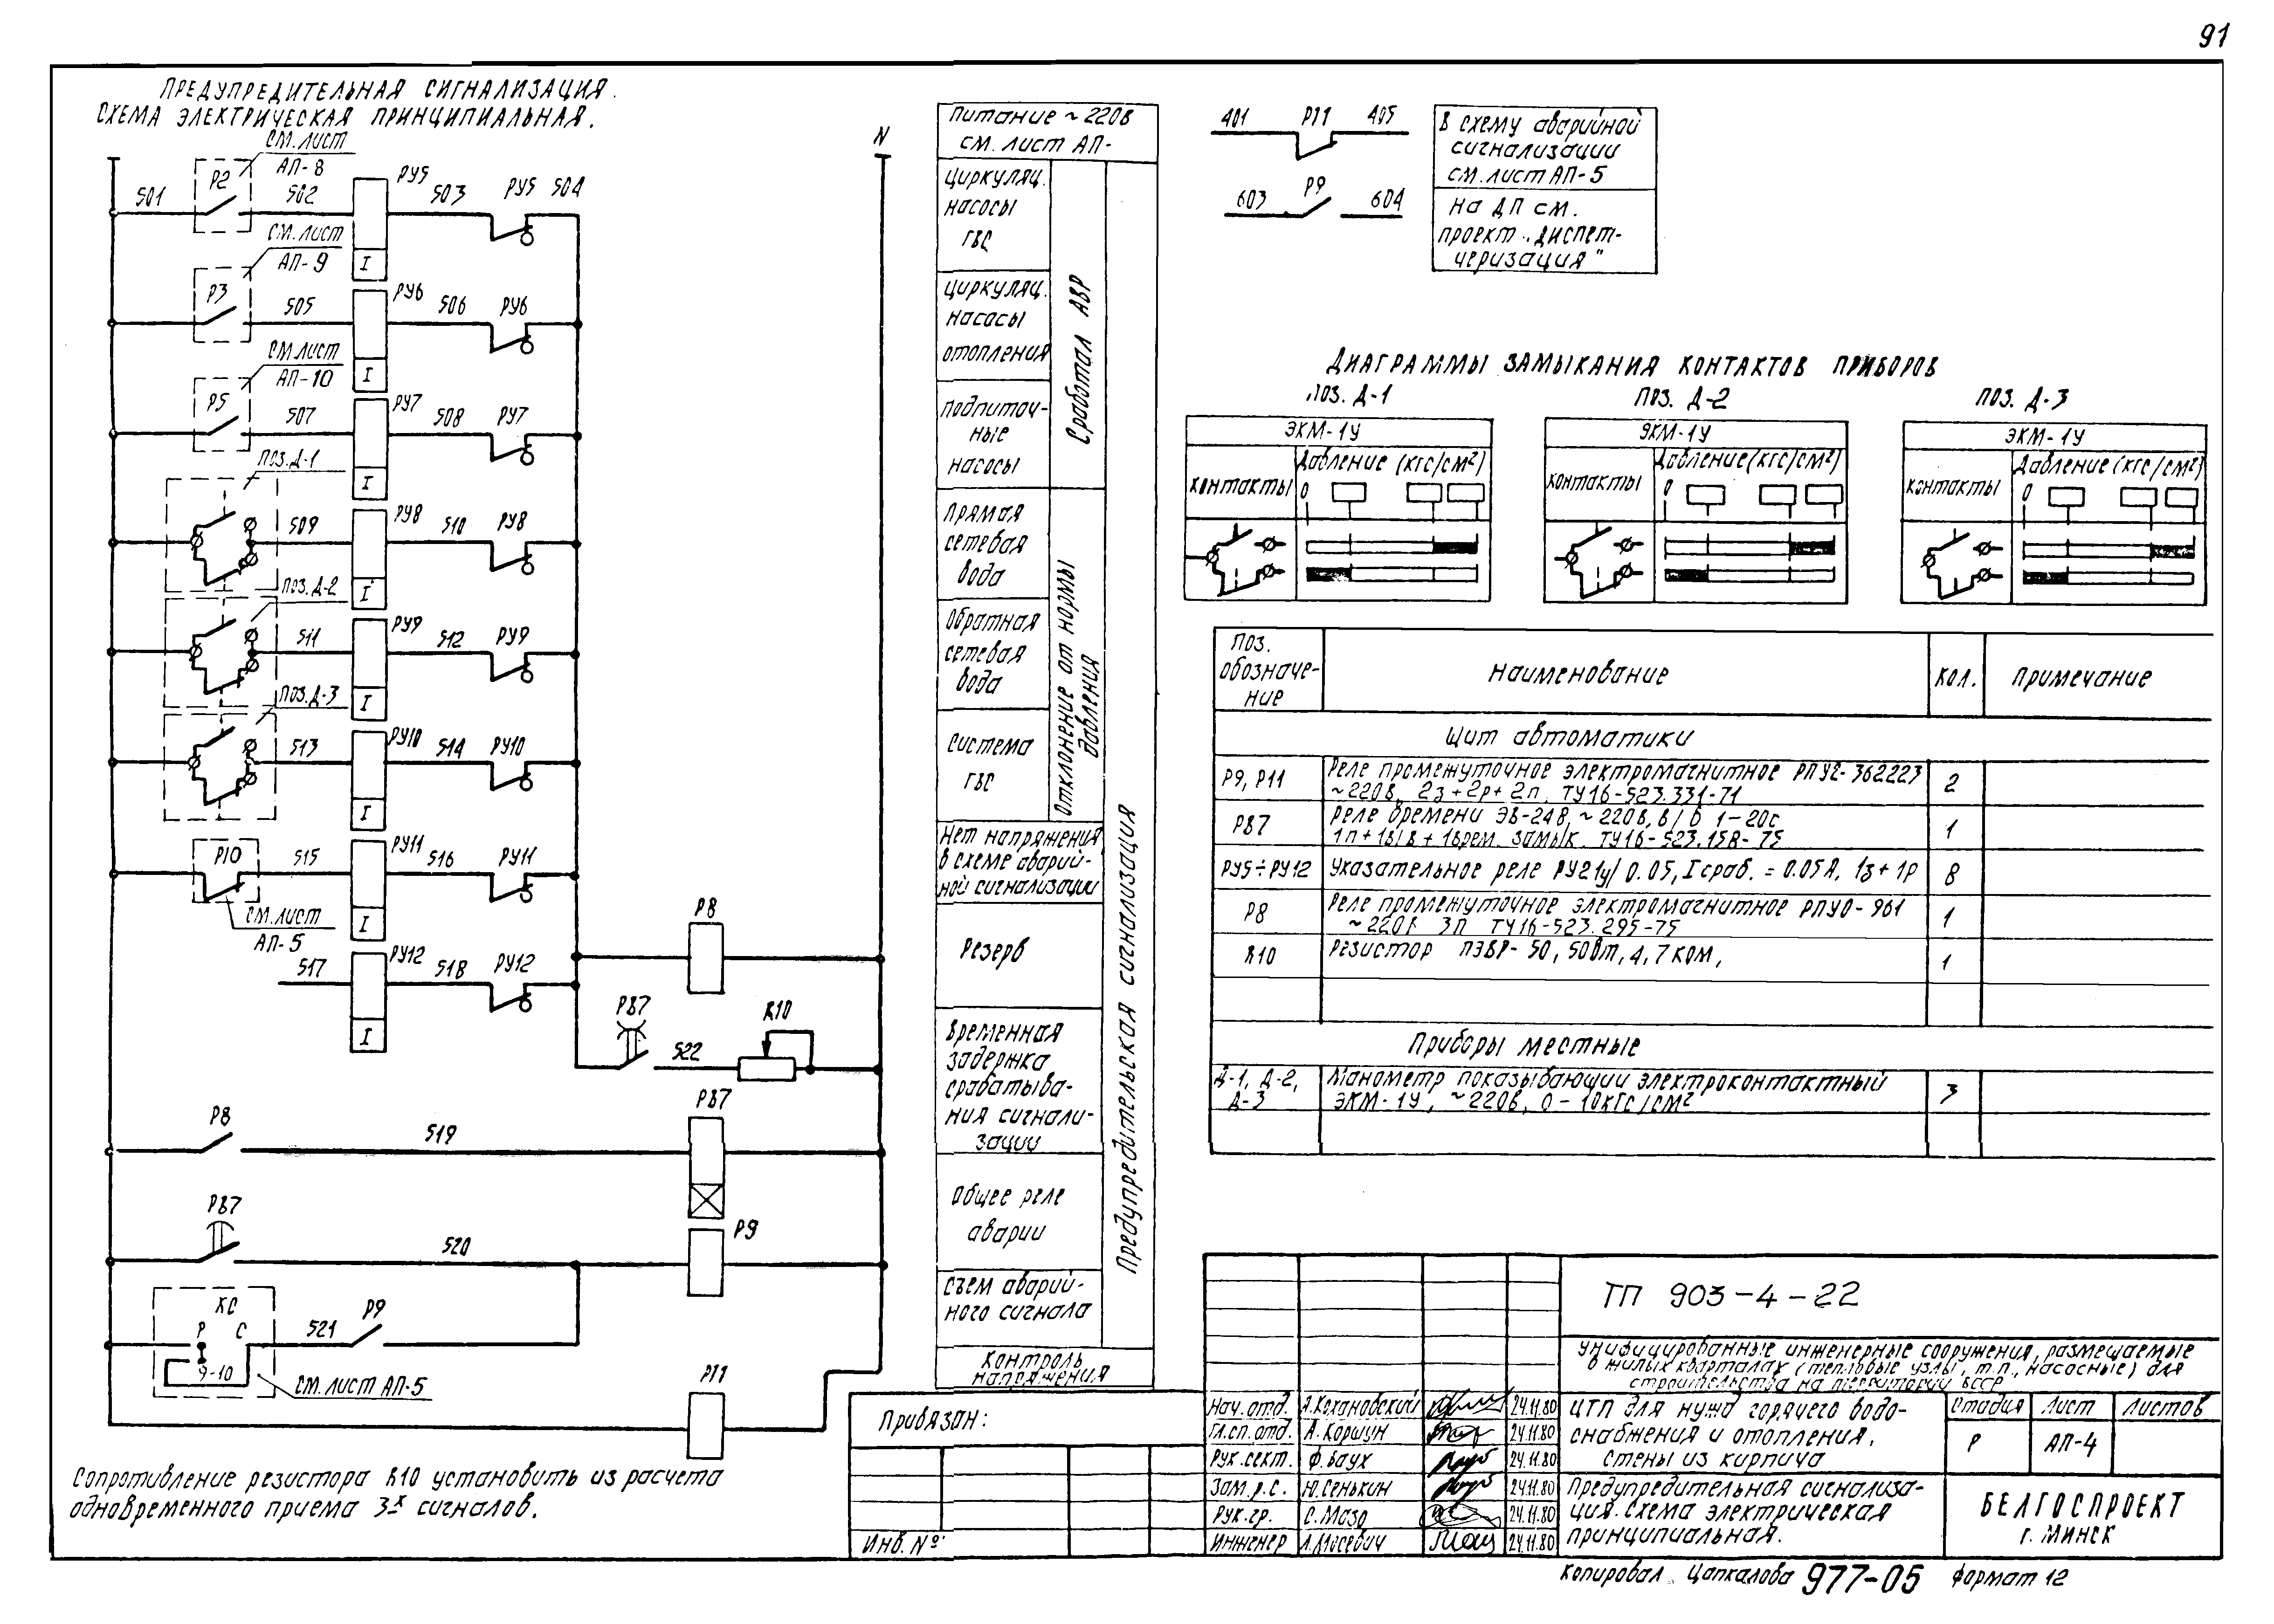 91
ПРЕДУПРЕДИТЕЛЬНАЯ СИГНАЛИЗАЦИЯ.
СХЕМА ЭЛЕКТРИЧЕСКАЯ ПРИНЦИПИАЛЬНАЯ.
N
СМ. ЛИСТ
АП-8
501
Р2
502
РУ5
503
РУ5
504
СМ. ЛИСТ
АП-9
Р3
505
РУ6
506
РУ6
СМ. ЛИСТ
АП-10
Р5
507
РУ7
508
РУ7
ПОЗ. Д-1
509
РУ8
510
РУ8
ПОЗ. Д-2
511
РУ9
512
РУ9
ПОЗ. Д-3
513
РУ10
514
РУ10
Р10
515
РУ11
516
РУ11
СМ. ЛИСТ
АП-5
517
РУ12
518
РУ12
I
I
I
I
I
I
I
I
Р8
РВ7
522
R10
Р8
519
РВ7
РВ7
520
Р9
КС
Р С
9-10
521
Р9
СМ. ЛИСТ АП-5
Р11
Сопротивление резистора R10 установить из расчета
одновременного приема 3х сигналов.
Питание ~ 220в
см. лист АП-
Циркуляц.
насосы
ГВС
Циркуляц.
насосы
отопления
Подпиточ-
ные
насосы
Сработал АВР
Прямая
сетевая
вода
Обратная
сетевая
вода
Система
ГВС
Отклонение от нормы
давления
Нет напряжения
в схеме аварий-
ной сигнализации
Резерв
Временная
задержка
срабатыва-
ния сигнали-
зации
Общее реле
аварии
Съем аварий-
ного сигнала
Контроль
напряжения
Предупредительская сигнализация
401 Р11 405
В схему аварийной
сигнализации
см. лист АП-5
603 Р9 604
На ДП см.
проект „Диспет-
черизация"
ДИАГРАММЫ ЗАМЫКАНИЯ КОНТАКТОВ ПРИБОРОВ
ПОЗ. Д-1
ЭКМ-1У
контакты
Давление (кгс/см²)
0
ПОЗ. Д-2
ЭКМ-1У
контакты
Давление (кгс/см²)
0
ПОЗ. Д-3
ЭКМ-1У
контакты
Давление (кгс/см²)
0
Поз.
обозначе-
ние
Наименование
Кол.
Примечание
Щит автоматики
Р9, Р11
Реле промежуточное электромагнитное РПУ2-362223
~220в, 2з+2р+2п. ТУ16-523.331-71
2
РВ7
Реле времени ЭВ-248, ~220в, в/в 1-20с
1п+1в/в+1врем. замык. ТУ16-523.158-75
1
РУ5÷РУ12
Указательное реле РУ21у/0.05, Iсраб. = 0.05А, 1з+1р
8
Р8
Реле промежуточное электромагнитное РПУ0-961
~220в 3п ТУ16-523.295-75
1
R10
Резистор ПЭВР-50, 50Вт, 4,7 ком,
1
Приборы местные
Д-1, Д-2,
Д-3
Манометр показывающий электроконтактный
ЭКМ-1У, ~220в, 0-10кгс/см²
3
ТП 903-4-22
Унифицированные инженерные сооружения, размещаемые
в жилых кварталах (тепловые узлы, т.п., насосные) для
строительства на территории БССР
Нач. отд. А.Кохановский 24.11.80
Гл.сп.отд. А.Коршун 24.11.80
Рук.сект. Ф.Баух 24.11.80
Зам.р.с. Ю.Сенькин 24.11.80
Рук.гр. С.Мазо 24.11.80
Инженер 24.11.80
ЦТП для нужд горячего водо-
снабжения и отопления.
Стены из кирпича
Стадия Лист Листов
Р АП-4
Предупредительная сигнализа-
ция. Схема электрическая
принципиальная.
БЕЛГОСПРОЕКТ
г. МИНСК
Привязан:
Инв. №:
Копировал Цапкалова 977-05 Формат 12